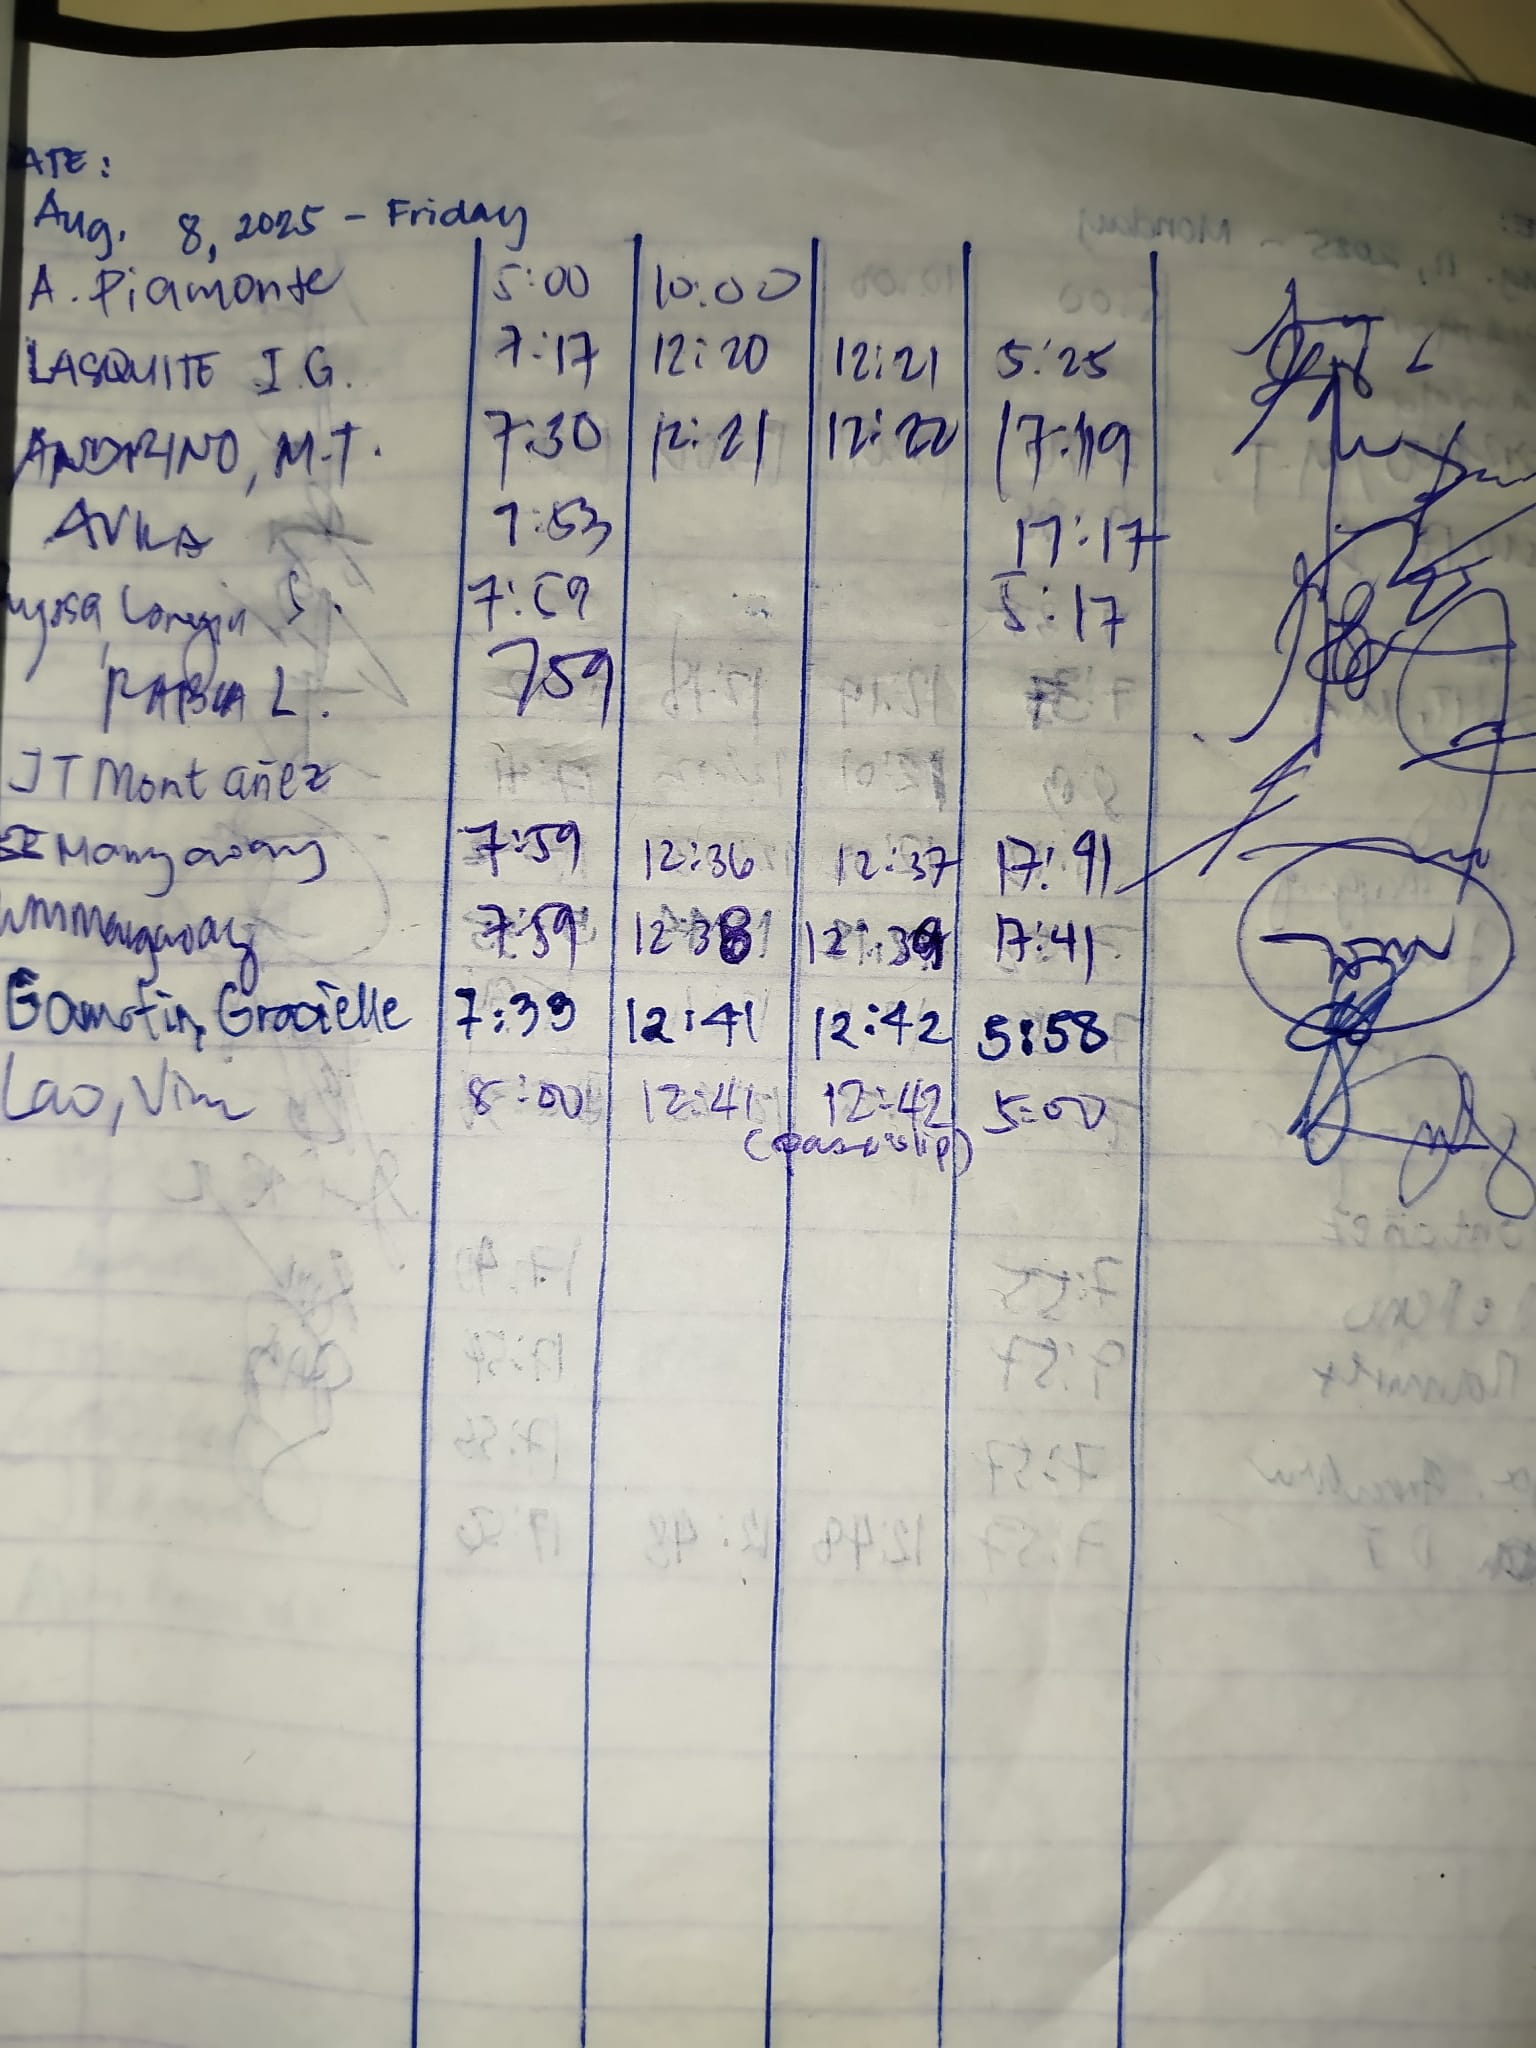 ATE:
Aug. 8, 2025 - Friday
A. Piamonte 5:00 10:00
LASQUITE I.G. 7:17 12:20 12:21 5:25
ANDRINO, M.T. 7:30 12:21 12:22 17:19
AVILA 7:53 17:17
S. 7:59 5:17
L. 759
JT Montañez
7:59 12:36 12:37 17:41
7:59 12:38 12:39 17:41
Gamotin, Gracielle 7:39 12:41 12:42 5:58
Lao, Vim 8:00 12:41 12:42 5:00
(pass slip)